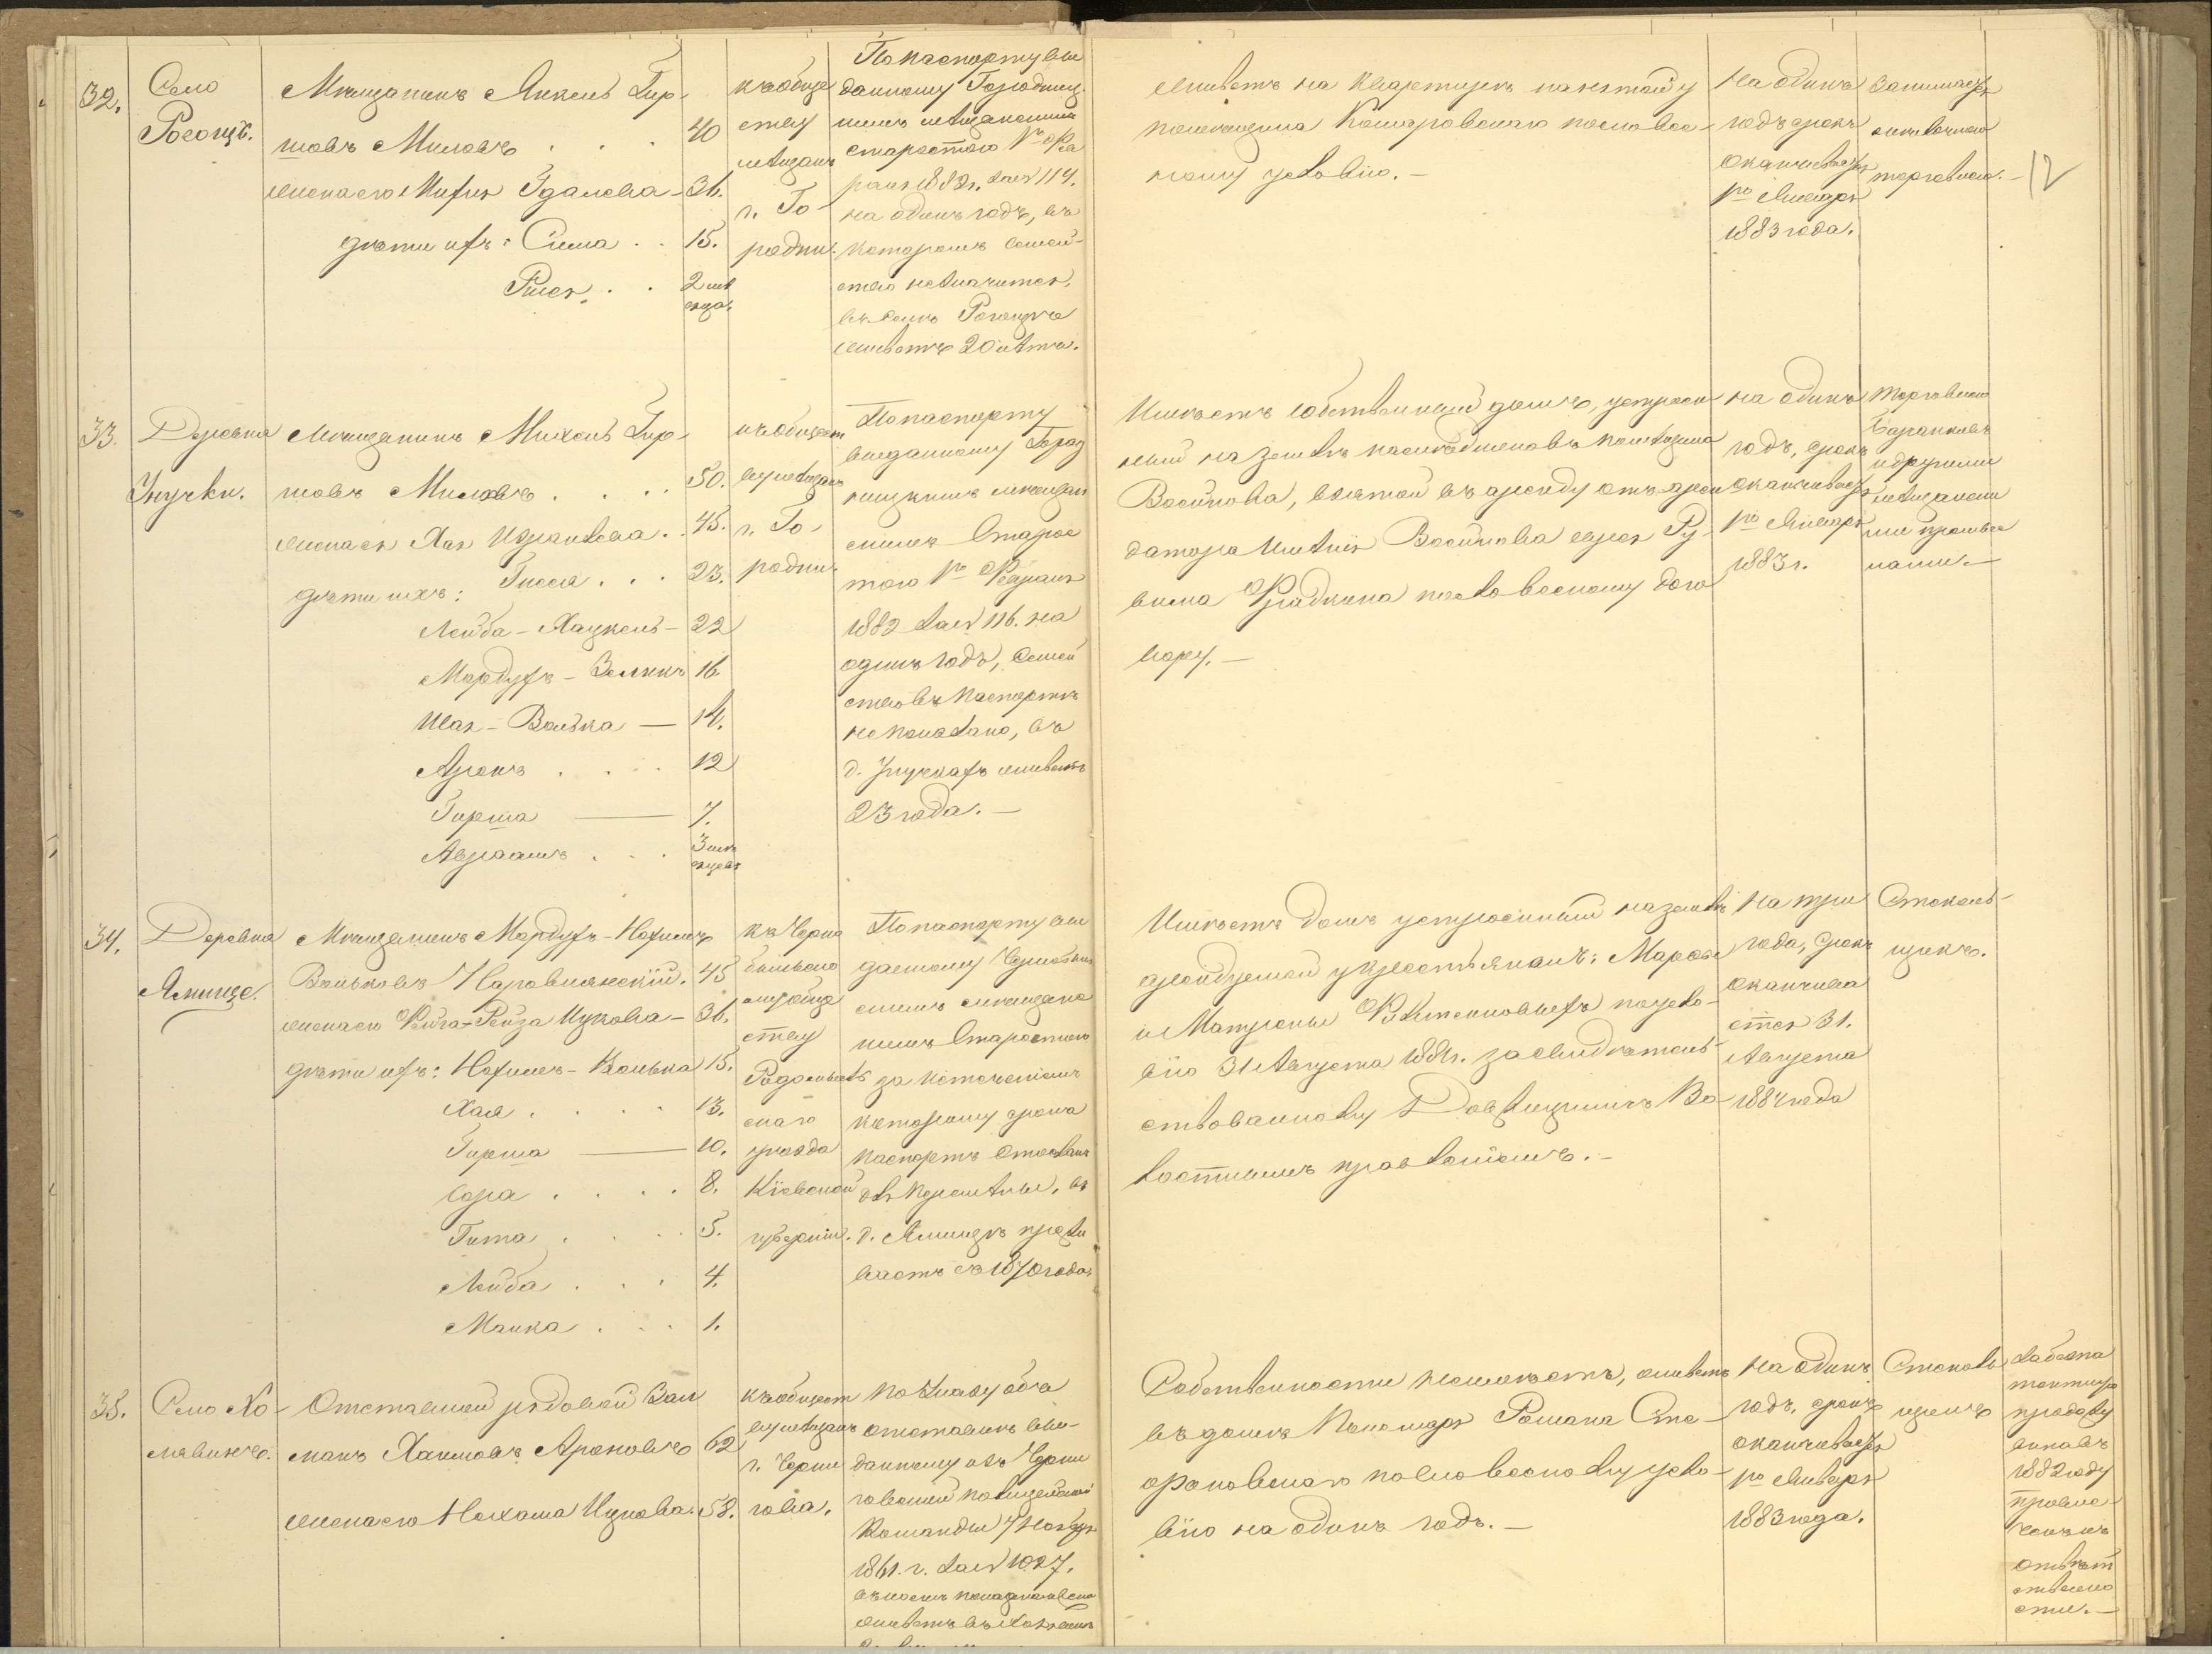 32.
Село
Рогощь.
Мѣщанинъ Янкель Гир-
шовъ Миловъ . . . 40
жена его Мифля Гдалева - 36.
дѣти ихъ: Сима . . 15.
Рися . . 2 мѣ
сяца.
къ обще
ству
мѣщан
г. Го
родни.
По паспорту вы
данному Городниц
кимъ мѣщанскимъ
старостою 1го Фев
раля 1882 г. за № 114.
на одинъ годъ, въ
которомъ семей-
ство не значится,
въ селѣ Рогощѣ
живетъ 20 лѣтъ.
Живетъ на квартирѣ нанятой у
помещика Комаровскаго по словес-
ному условію. —
На одинъ
годъ срокъ
оканчивается
1го Января
1883 года.
Занимается
мелочною
торговлею. —
12
33.
Деревня
Унучки.
Мѣщанинъ Михель Гир-
шовъ Миловъ . . . . 50.
жена его Хая Израилева . . 45.
дѣти ихъ: Гися . . . 23.
Лейба - Хацкель - 22
Мордухъ - Зеликъ 16
Шая - Волька — 14.
Аронъ . . . . 12
Гирша — 7.
Авраамъ . . . 3 мѣ
сяцевъ
къ общест
ву мѣщанъ
г. Го-
родни.
По паспорту
выданному Город
ницкимъ мѣщан
скимъ Старос
тою 1го Февраля
1882 за № 116. на
одинъ годъ, семей
ство въ паспортѣ
не показано, въ
д. Унучкахъ живетъ
23 года. —
Имѣетъ собственный домъ, устроен
ный на землѣ наслѣдниковъ помѣщика
Войцнова, взятой въ аренду отъ арен
датора имѣнія Войцнова еврея Ру-
вина Фрадкина по словесному дого
вору. —
на одинъ
годъ, срокъ
оканчивается
1го Января
1883 г.
Торговлею
баранковъ
и другими
мѣщански
ми промысл
лами. —
34.
Деревня
Ямище.
Мѣщанинъ Мордухъ - Нохимъ
Вольковъ Наровлянскій. 45
жена его Фейга - Рейза Ицкова - 36.
дѣти ихъ: Нохимъ - Волька 15.
Хая . . . . 13.
Гирша — 10.
Сора . . . . 8.
Гита . . . . 5.
Лейба . . . 4.
Манка . . . 1.
къ Черно
быльско
му обще
ству
Радомысль
скаго
уѣзда
Кіевской
губерніи.
По паспорту вы
данному Чернобыль
скимъ мѣщанс
кимъ Старостою
за истеченіемъ
которому срока
паспортъ отосланъ
для перемѣны, въ
д. Ямищѣ прожи
ваетъ съ 1870 года
Имѣетъ домъ устроенный на землѣ
арендуемой у крестьянкъ: Марфы
и Матроны по усло-
вію 31 Августа 1881 г. засвидѣтель-
ствованному Довжицкимъ Во-
лостнымъ правленіемъ. —
На три
года, срокъ
оканчива
ется 31.
Августа
1884 года
Стеколь-
щикъ.
35.
Село Хо-
мявинъ.
Отставной рядовой Зал
манъ Хаимовъ Ароновъ 62
жена его Нехама Ицкова. 58.
къ общест
ву мѣщанъ
г. Черни
гова.
по указу объ
отставкѣ вы-
данному изъ Черни
говской полицейской
Команды 7 Ноября
1861. г. за № 1027.
Собственности не имѣетъ, живетъ
въ домѣ Пономаря Романа Сте-
фановскаго по словесному усло-
вію на одинъ годъ. —
на одинъ
годъ, срокъ
оканчивается
1го Января
1883 года.
Стеколь
щикъ
продажу
вина въ
1882 году
привле-
ченъ къ
отвѣт
ственно
сти. —